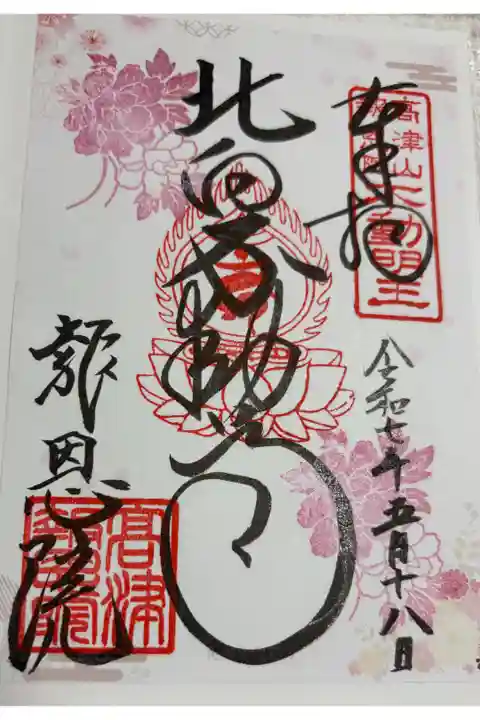 奉拝
高津山
不動明王
令和七年五月十八日
北向不動尊
報恩院
高津
報恩院